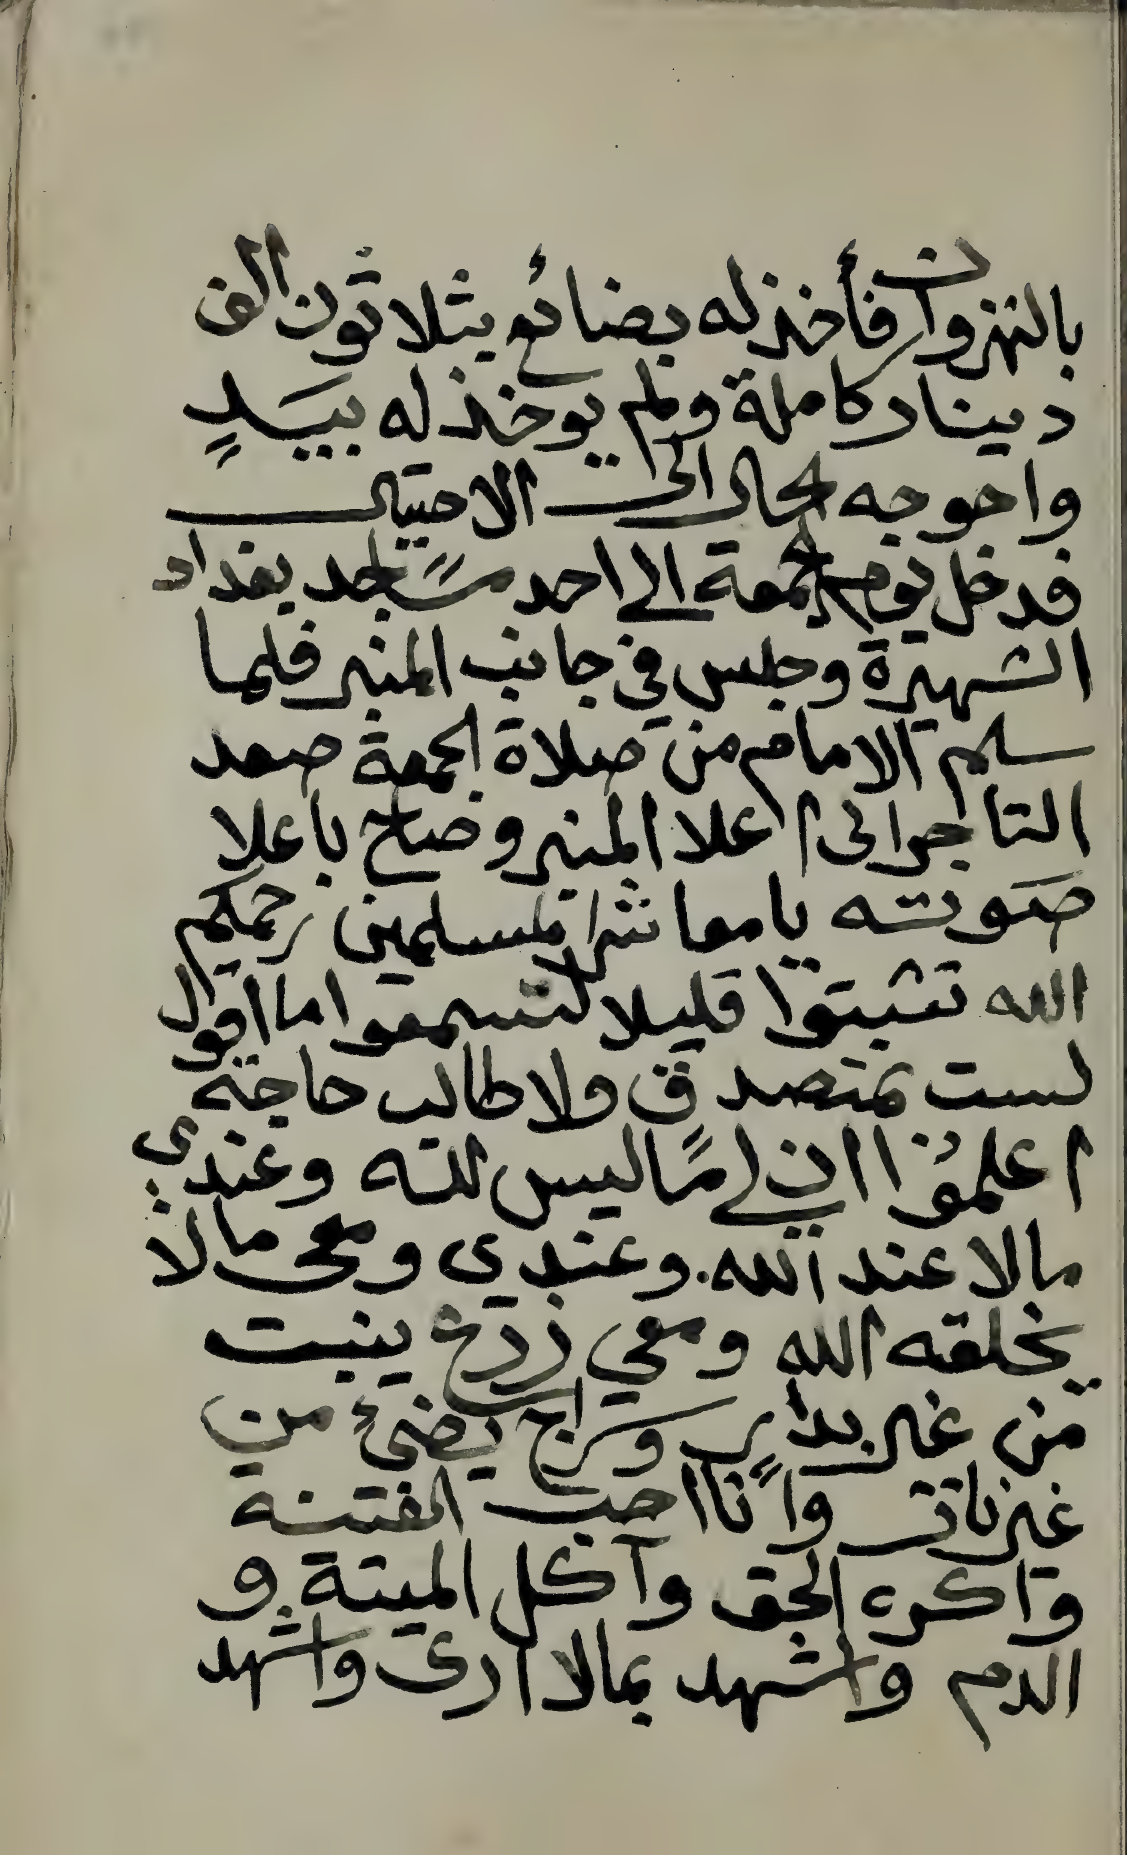 بالنهروان فأخذ له بضائع بثلاثون الف
دينار كاملة ولم يوخذ له بيدٍ
واحوجه الحال الى الاحتيال
فدخل يوم الجمعة الى احد مساجد بغداد
الشهيرة وجلس في جانب المنبر فلما
سلم الامام من صلاة الجمعة صعد
التاجر الى اعلا المنبر وصاح باعلا
صوته يا معاشر المسلمين رحمكم
الله تثبتوا قليلا لتسمعوا ما اقول
لست بمتصدق ولا طالب حاجة
اعلموا ان لي ما ليس لله وعندي
مالا عند الله. وعندي ومعي مالا
يخلقه الله ومعي زرع ينبت
من غير بدار وسراج يضئ من
غير نار وانا احب الفتنة
واكره الحق وآكل الميتة و
الدم واشهد بمالا ارى واشهد